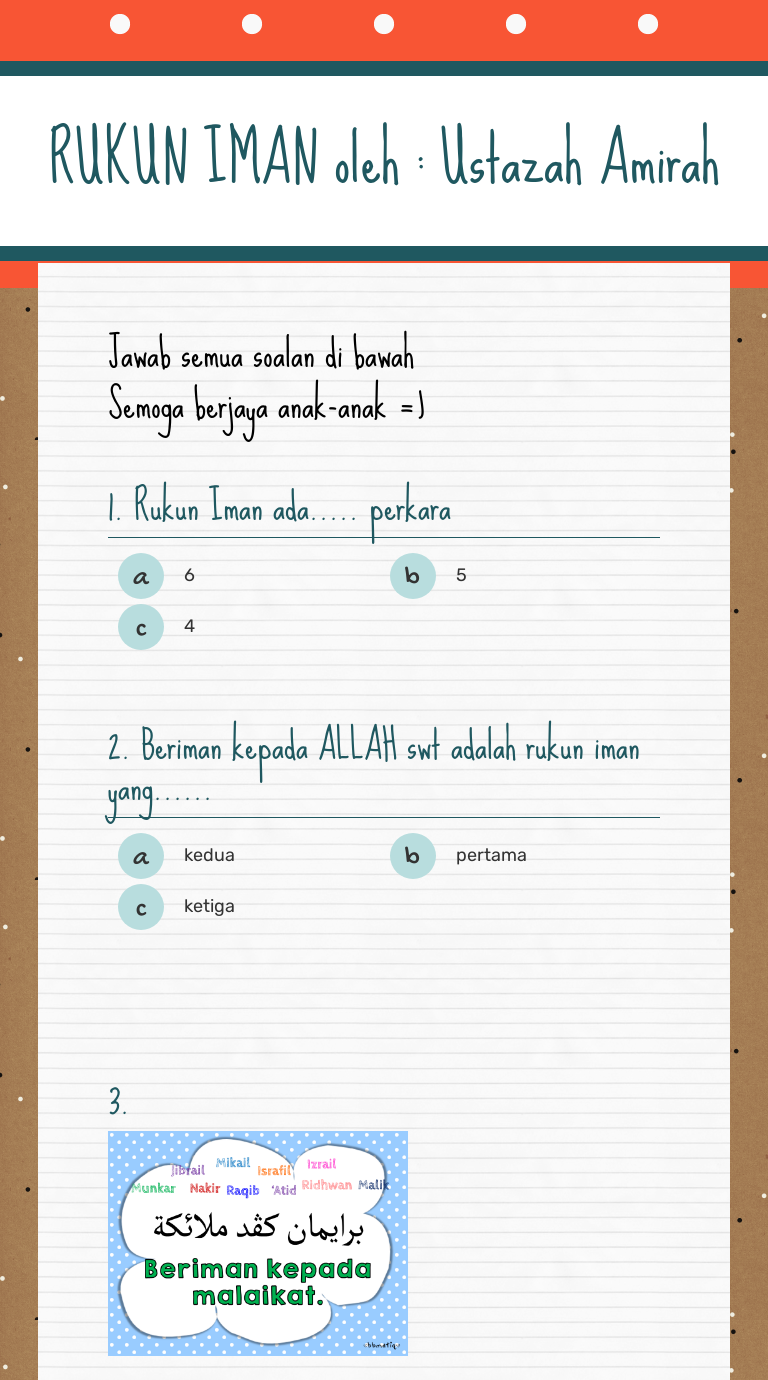 RUKUN IMAN oleh : Ustazah Amirah
Jawab semua soalan di bawah
Semoga berjaya anak-anak =)
1. Rukun Iman ada..... perkara
a 6 b 5
c 4
2. Beriman kepada ALLAH swt adalah rukun iman
yang......
a kedua b pertama
c ketiga
3.
Jibrail Mikail Israfil Izrail
Munkar Nakir Raqib 'Atid Ridhwan Malik
برايمان كڤد ملائكة
Beriman kepada
malaikat.